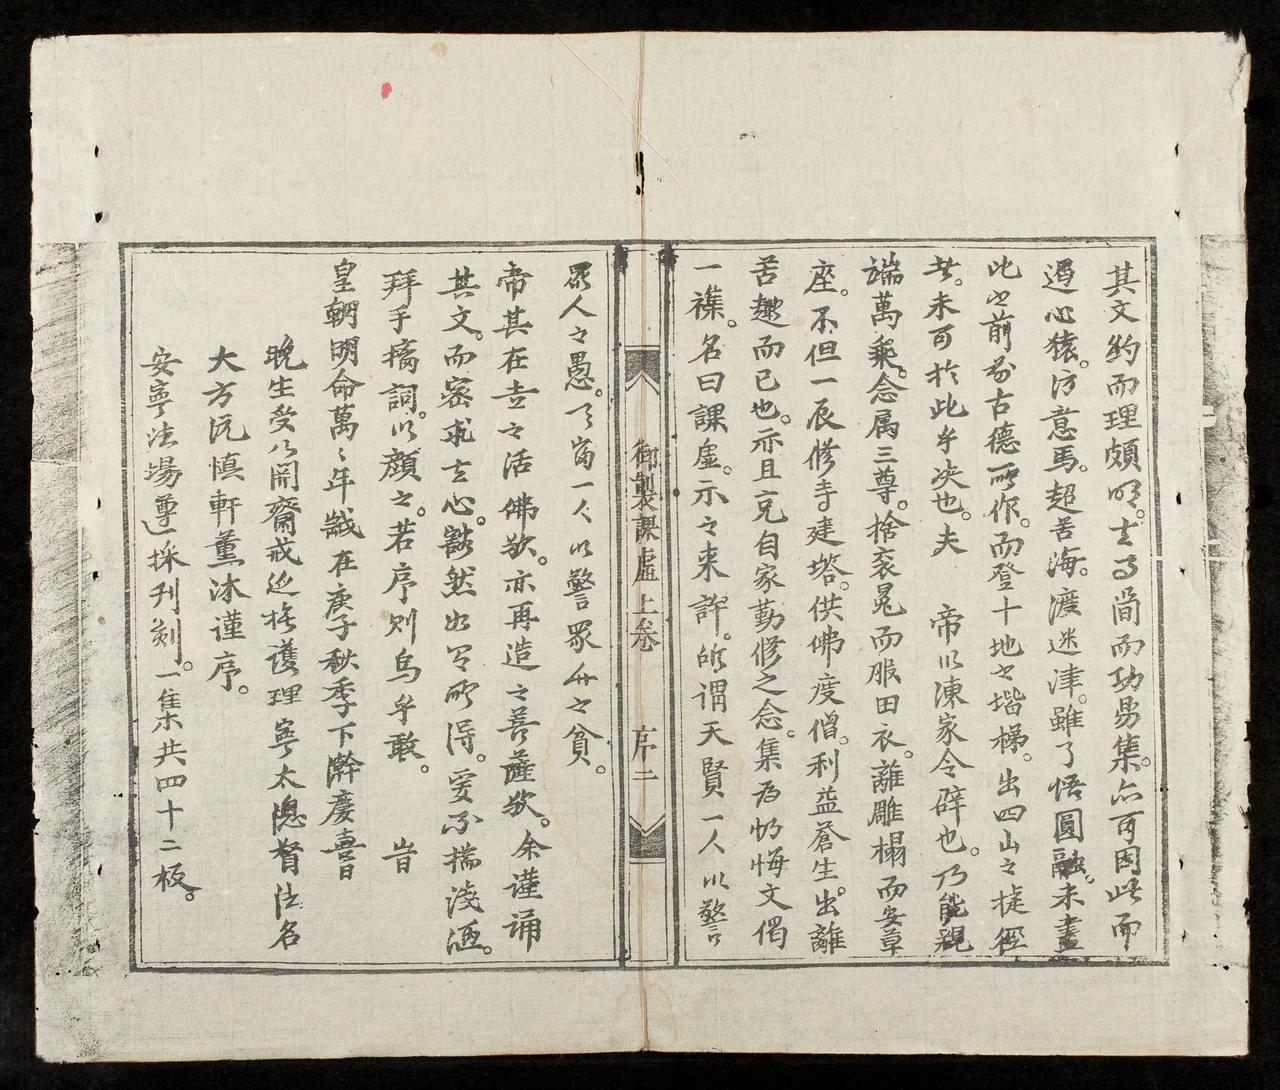 其文約而理頗明。其了簡而功易集。亦可因此而
過心猿。防意馬。超苦海。渡迷津。雖了悟圓融。未盡
此之前為古德所作。而登十地之堦梯。出四山之捷徑
者。未可於此乎决也。夫 帝以凍家令辟也。乃能親
端萬乘。念属三尊。捨衮冕而服田衣。離雕榻而安草
座。不但一辰修寺建塔。供佛度僧。利益蒼生。出離
苦趣而已也。亦且克自家勤修之念。集為懺悔文偈
一襍。名曰課虛。示之来許。所謂天賢一人以警
眾人之愚。天富一人以警眾人之貧。
帝其在世之活佛歟。亦再造之菩薩歟。余謹誦
其文。而密求其心。豁然如有所得。爰不揣淺洒。
拜手摛詞。以顔之。若序則烏乎敢。 旹
皇朝明命萬〻年歲在庚子秋季下澣慶喜日
晚生受以開齋戒延於護理寧太隐督法名
大方沅慎軒薰沐谨序。
安寧法場遵採刊刻。一集共四十二板。
御製課虛上卷 序二